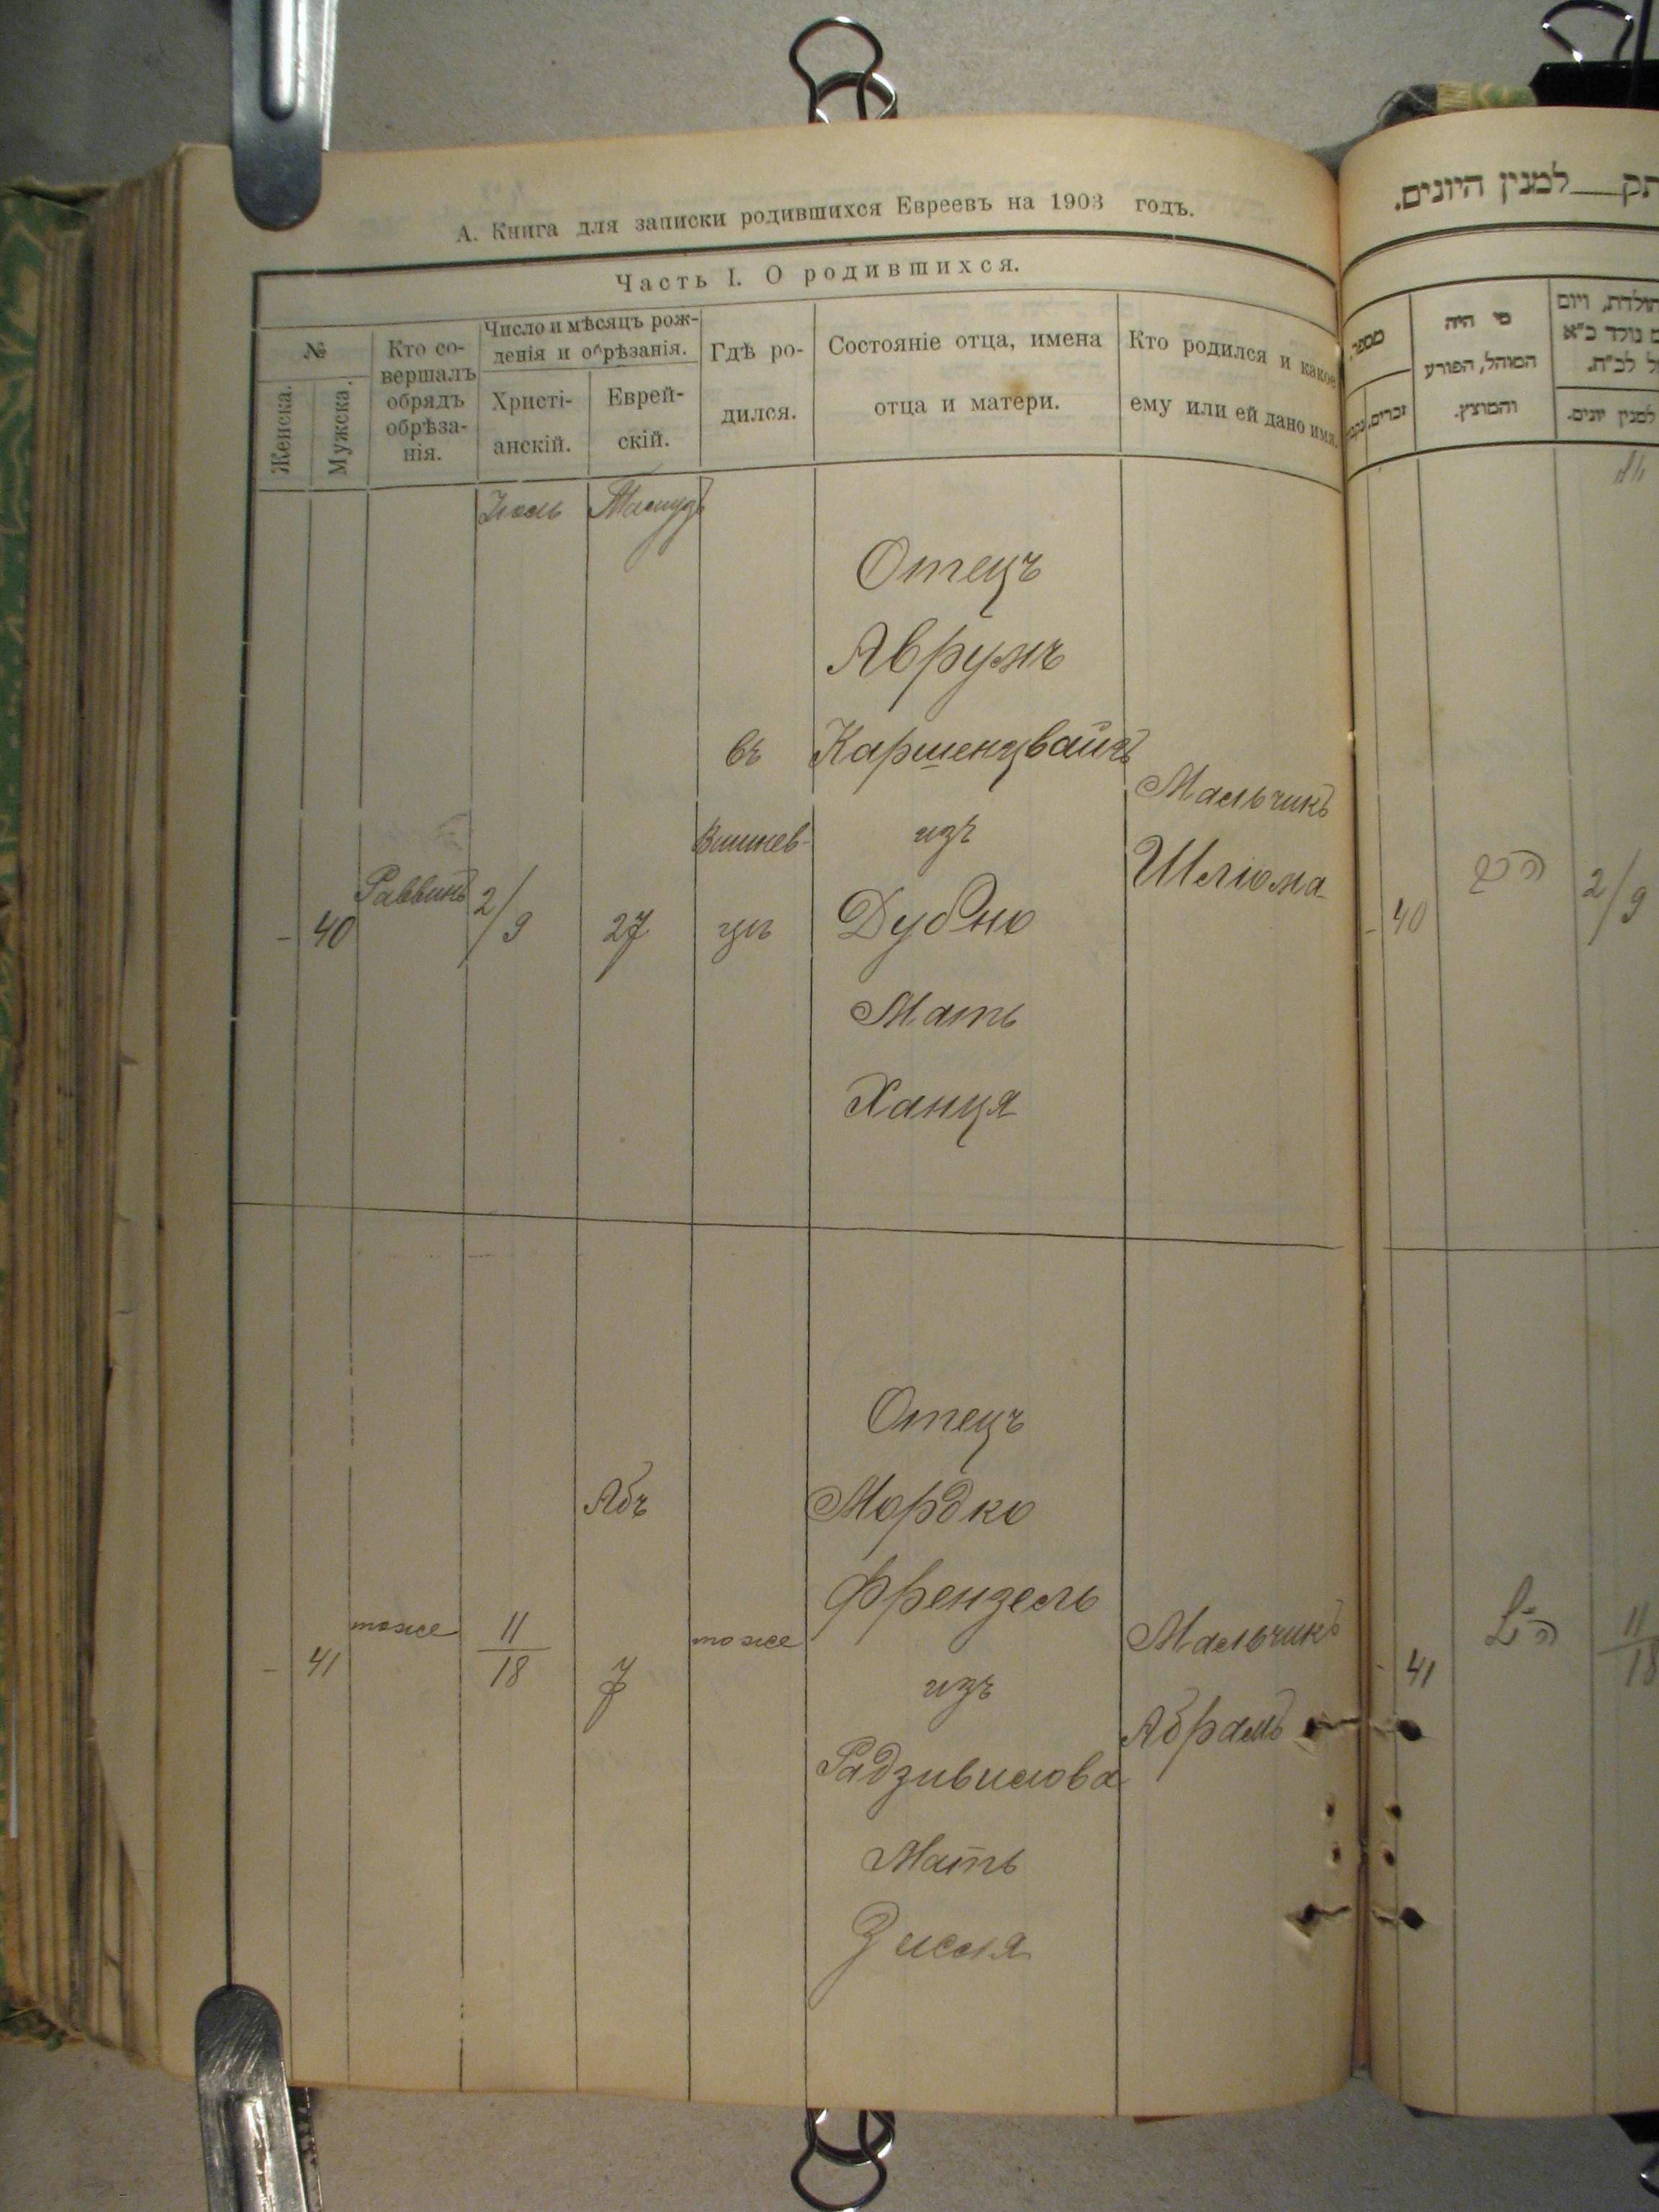 А. Книга для записки родившихся Евреевъ на 1903 годъ.
Часть I. О родившихся.
№
Женска.
Мужска.
Кто со-
вершалъ
обрядъ
обрѣза-
нія.
Число и мѣсяцъ рож-
денія и обрѣзанія.
Христі-
анскій.
Еврей-
скій.
Гдѣ ро-
дился.
Состояніе отца, имена
отца и матери.
Кто родился и какое
ему или ей дано имя.
Іюль
– 40
Раввинъ
2/9
27
въ
Вишнев-
цѣ
Отецъ
Аврумъ
Каршенцвайгъ
изъ
Дубно
Мать
Ханця
Мальчикъ
Шлюма
– 41
тоже
11/18
Абъ
7
тоже
Отецъ
Мордко
Френзель
изъ
Радзивилова
Мать
Зисля
Мальчикъ
Абрамъ
למנין היונים.
מספר
זכרים.
מי היה
המוהל, הפורע
והמוצץ.
למנין יונים.
– 40
2/9
– 41
11/18